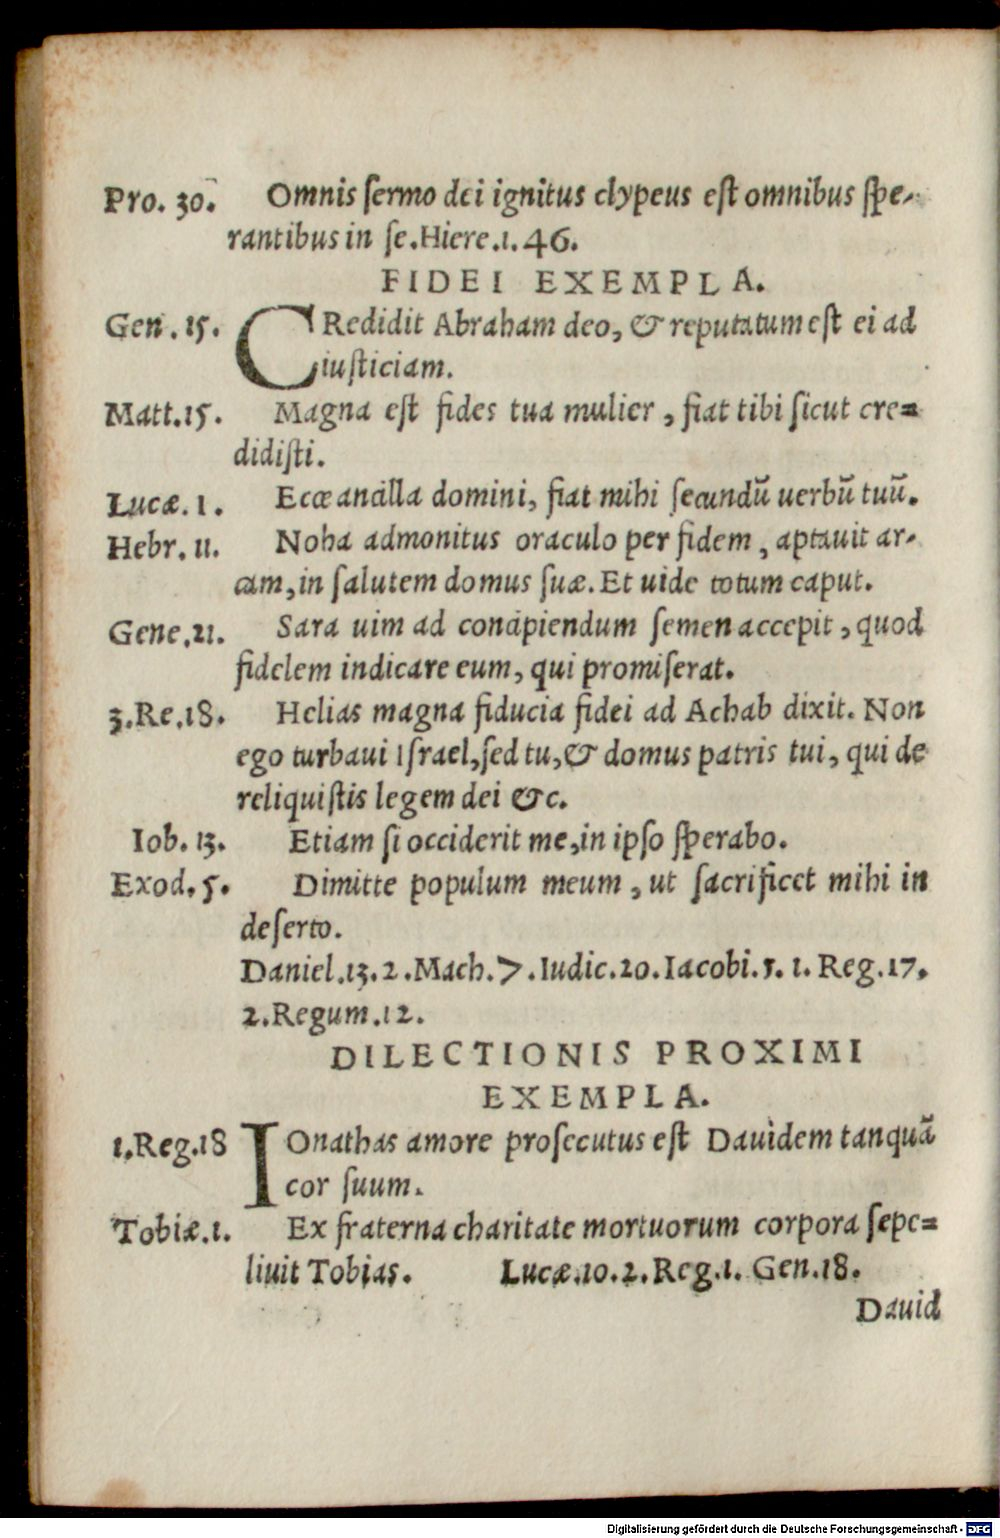 Pro. 30. Omnis ſermo dei ignitus clypeus eſt omnibus ſpe-
rantibus in ſe. Hiere.1.46.
FIDEI EXEMPLA.
Gen. 15. CRedidit Abraham deo, & reputatum eſt ei ad
iuſticiam.
Matt.15. Magna eſt fides tua mulier, fiat tibi ſicut cre=
didiſti.
Lucæ. 1. Ecce ancilla domini, fiat mihi ſecundũ uerbũ tuũ.
Hebr. 11. Noha admonitus oraculo per fidem, aptauit ar-
cam, in ſalutem domus ſuæ. Et uide totum caput.
Gene.21. Sara uim ad concipiendum ſemen accepit, quod
fidelem indicare eum, qui promiſerat.
3.Re.18. Helias magna fiducia fidei ad Achab dixit. Non
ego turbaui Iſrael, ſed tu, & domus patris tui, qui de
reliquiſtis legem dei &c.
Iob. 13. Etiam ſi occiderit me, in ipſo ſperabo.
Exod. 5. Dimitte populum meum, ut ſacrificet mihi in
deſerto.
Daniel.13.2.Mach.7.Iudic.20.Iacobi.5. 1. Reg.17.
2.Regum.12.
DILECTIONIS PROXIMI
EXEMPLA.
1.Reg.18 IOnathas amore proſecutus eſt Dauidem tanquã
cor ſuum.
Tobiæ.1. Ex fraterna charitate mortuorum corpora ſepe=
liuit Tobias. Lucæ.10.2.Reg.1. Gen.18.
Dauid
Digitalisierung gefördert durch die Deutsche Forschungsgemeinschaft - DFG